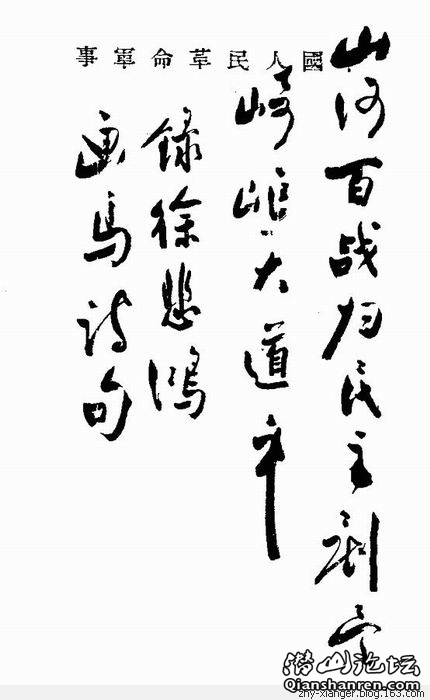 國人民革命軍事
山河百战归民主刬尽
崎岖大道平
録徐悲鴻
画馬诗句
潜山论坛
Qianshanren.com
zhy-xianger.blog.163.com